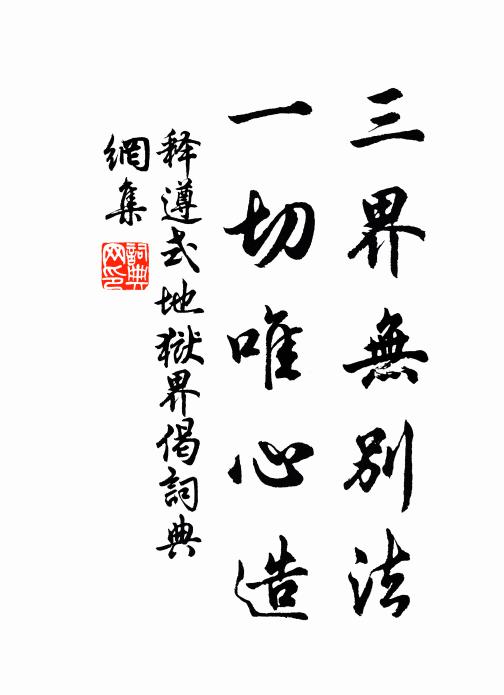 三界無別法
一切唯心造
释遵式地獄界偈詞典
網集
詞典
网印